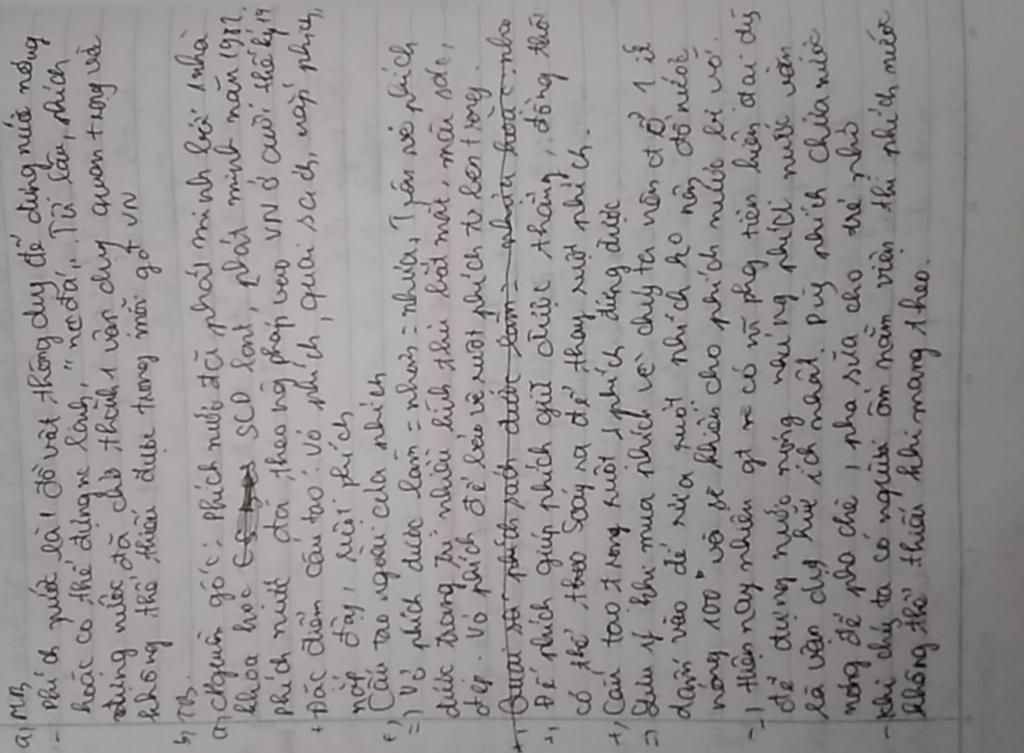 a, MB
- Phích nước là 1 đồ vật thông dụg để đựng nước nóng
hoặc có thể đựng nc lạnh, "nc đá". Từ lâu, phích
đựng nước đã chở thành 1 vận dụg quan trọng và
không thể thiếu được trong mỗi gđ VN
b, TB.
a, Nguồn gốc: Phích nước đc phát minh bởi 1 nhà
khoa học SCD lant, phát minh năm
phích nước đã theo ng pháp vào VN ở cuối thế kỷ 19
+ Đặc điểm cấu tạo: Vỏ phích, quai sách, nắp phích,
nắp đậy, ruột phích
Cấu tạo ngoài của phích
=) Vỏ phích được làm = nhôm = nhựa, Trên vỏ phích
được trang trí nhiều hình thù bắt mắt, màu sắc,
đẹp. Vỏ phích để bảo vệ ruột phích từ bên trong.
+, Quai sách phích được làm = nhựa hoặc nhô
+, Đế phích giúp phích giữ được thăng, đồng thời
có thể tháo xoáy ra để thay ruột phích.
+, Cấu tạo trong ruột phích đựng được
=) lưu ý khi mua phích về chúg ta nên đổ 1 ít
dấm vào để rửa ruột phích ko nên đổ nước
nóng 100° vô sẽ khiến cho phích nước bị vỡ.
-, Hiện nay nhiên gt có n phg tiện hiện đại dù
để đựng nước nóng nhưng phích nước vẫn
là vận dụg hữu ích nhất. Dùg phích chứa nước
nóng để pha chè, pha sữa cho trẻ nhỏ
- khi chúg ta có người ốm nằm viện thì phích nước
không thể thiếu khi mang theo.